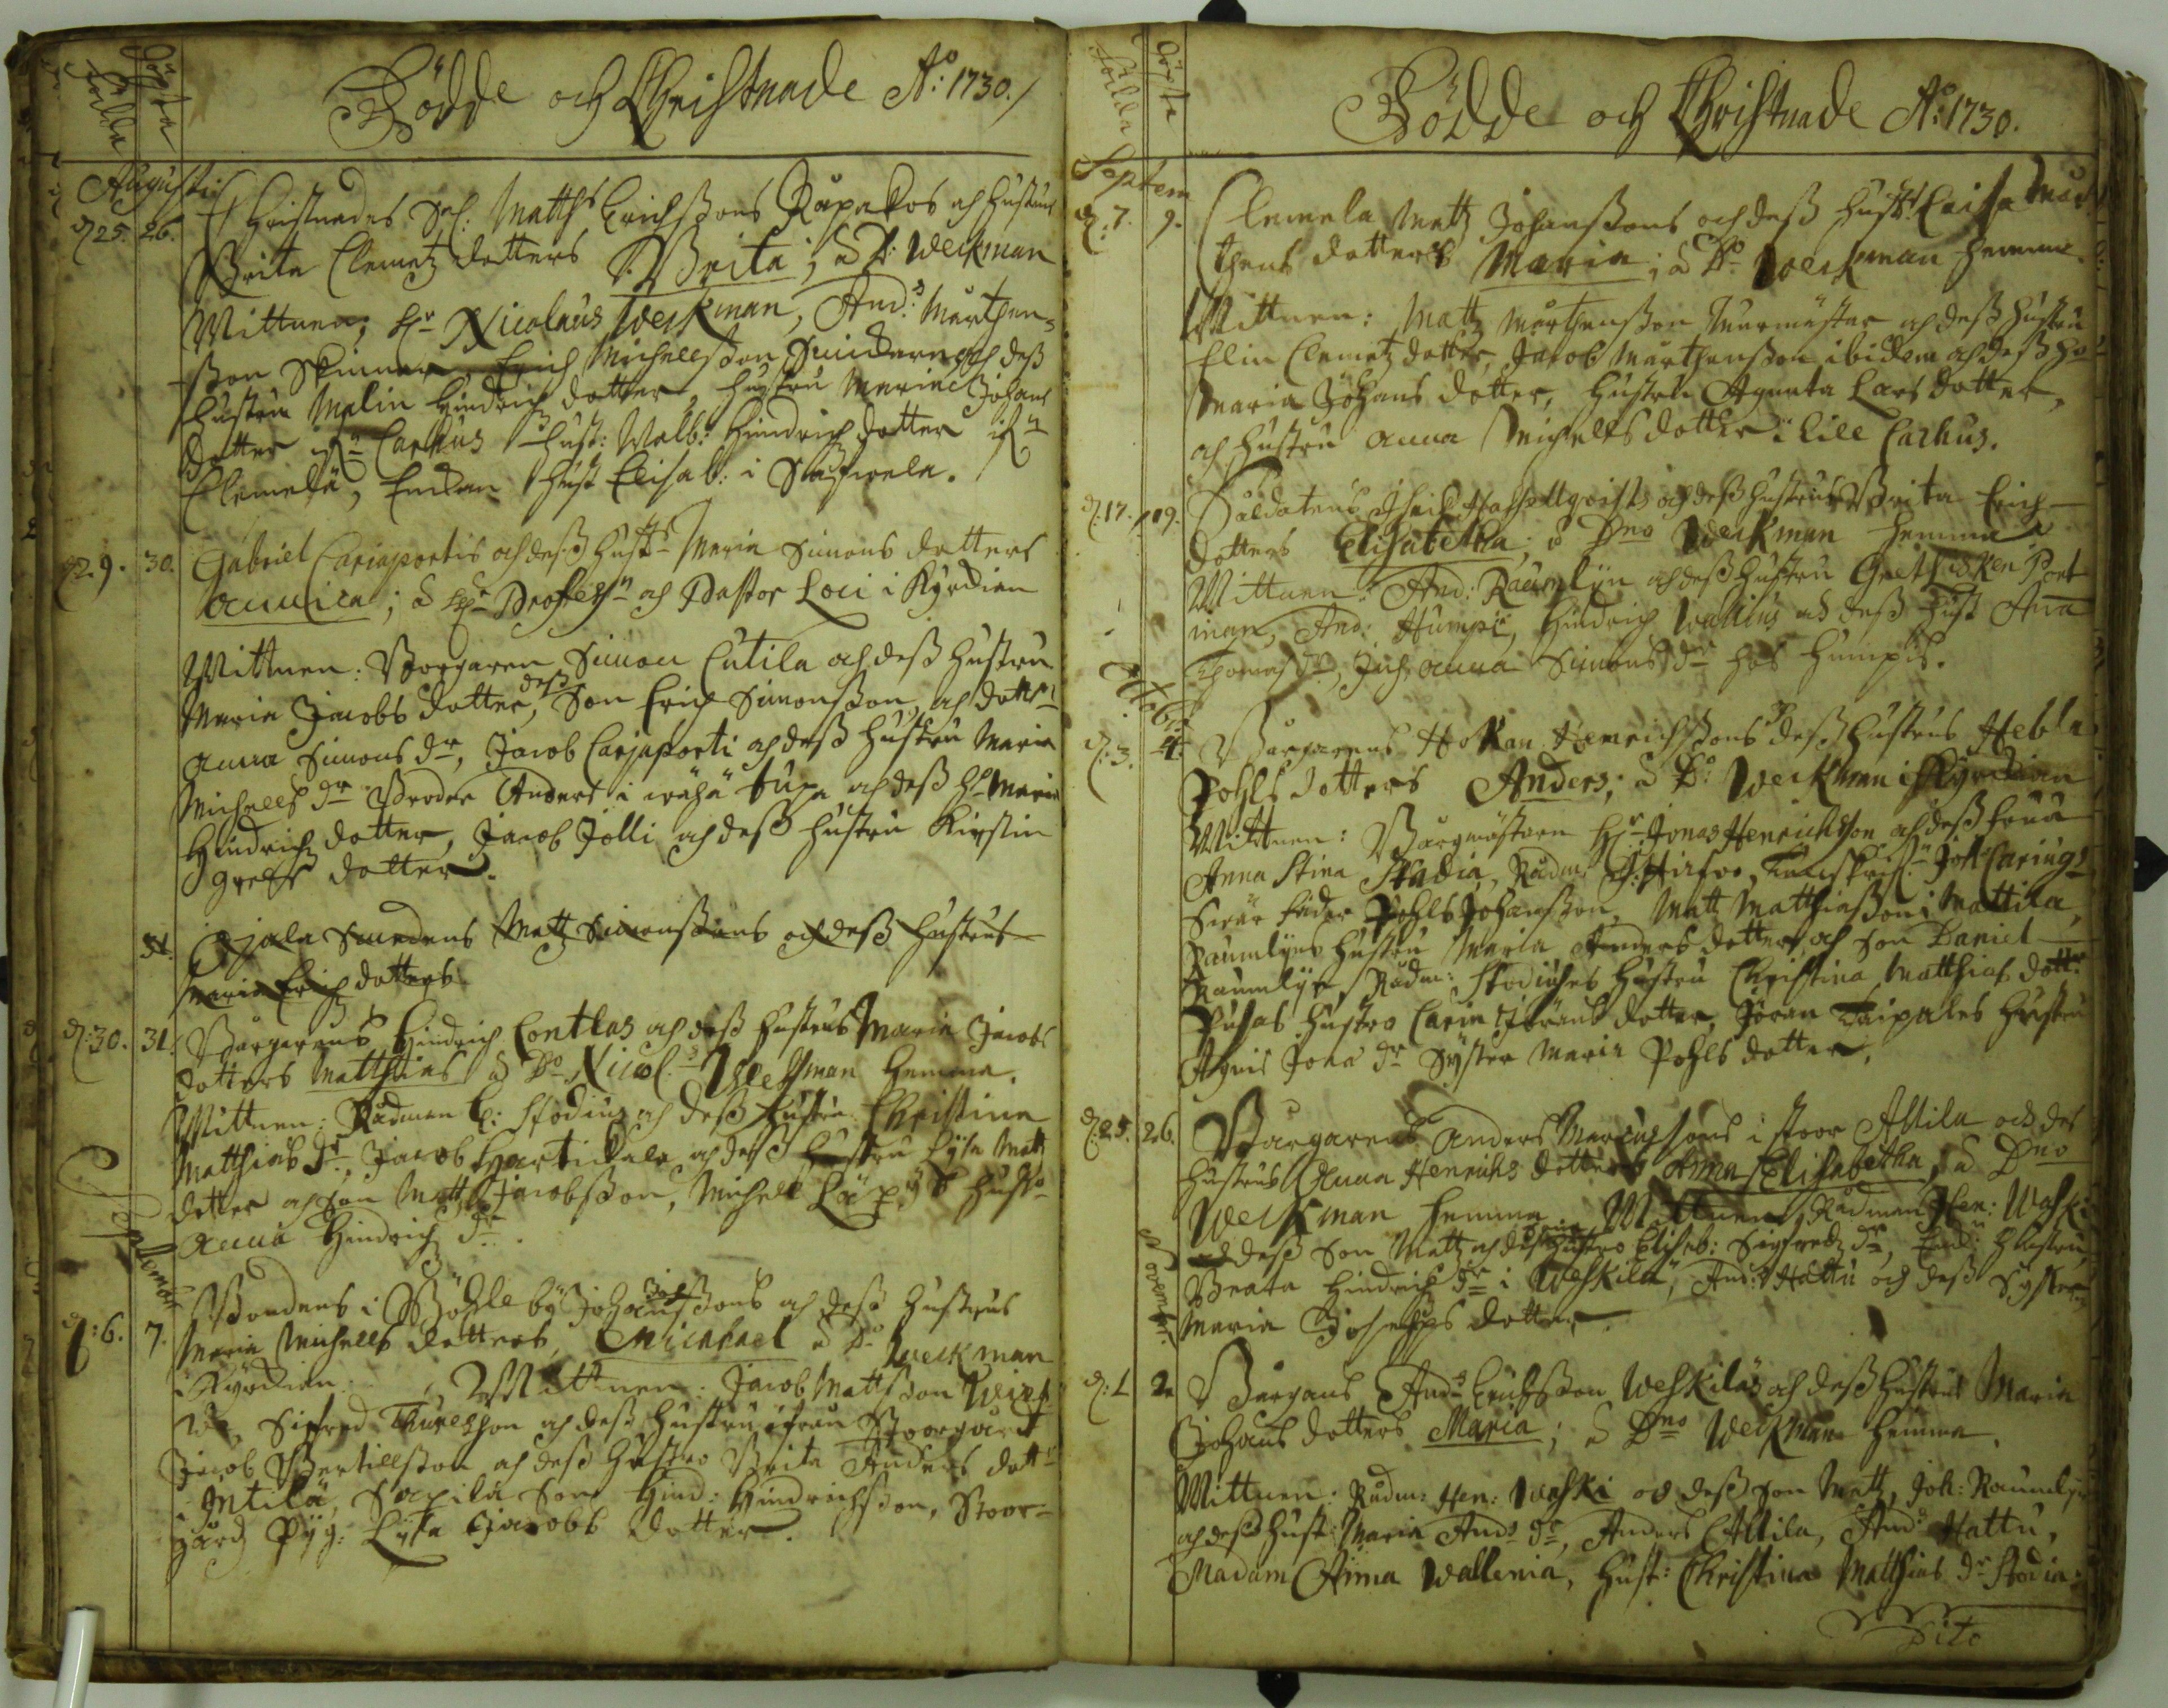 Födde och Christnade Ao: 1730.
Födda
Döpta
Augusti
d. 25. 26. Christnades Sal. Matths Erichssons Rapakos och hustrus
Brita Clemetz dotters Brita; a D: Weckman
Wittnen; Hr Nicolaus Weckman, Ands Mårthens-
son Skinnare, Erich Michellsson och dess
hustru Malin Hindrichz dotter, hustru Maria Johans
dotter Carhus Hust: Walb: Hindrichz dotter
Clemelä, Enkan Hust Elisab: i
29. 30. Gabriel Cariaportis och dess hustrs Maria Simons dotters
Annica; a Hr Profess:n och Pastor Loci i Kyrckian
Wittnen: Borgaren Simon Cutila och dess hustru
Maria Jacobs dotter, dess Son Erich Simonsson, och dotter
Anna Simons dr, Jacob Carjaporti och dess hustru Maria
Michells dr Broder Anders i wähä tupa och dess H. Maria
Hindrichz dotter, Jacob Jolli och dess hustru Kirstin
Grels dotter.
31. Smedens Matz Simonssons och dess hustrus
Maria Erichz dotters
d. 30. 31. Borgarens Hindrich Contlas och dess hustrus Maria Jacobs
dotters Matthias a Do Nicol: Weckman hemma.
Wittnen: Rådman E: Stodius och dess hustru Christina
Matthias dr, Jacob Hartikala och dess hustru Lysa Matz
dotter och son Matz Jacobsson, Michell hustr
Anna Hindrichz dr.
September
d: 6. 7. Bondens i Böhle by Johan Johanssons och dess hustrus
Maria Michells dotters, Michael a Do Weckman
i Kyrckian. Wittnen: Jacob Mattsson
Sigfred Thuresson och dess hustru ifrån Stoorgård
Jacob Bertillsson och dess hustro Brita Anders dottr
i Antila, Sapila Son Hind: Hindrichsson, Stoor-
gårds Pyg: Lysa Jacobs dotter.
Födde och Christnade Ao: 1730.
Födda
Döpta
Septem
d: 7. 9. Clemela Matz Johanssons och dess hustrs Caisa Mår-
thens dotters Maria; a Do Weckman hemma.
Wittnen: Matz Mårthensson Murmästar och dess hustru
Elin Clemetz dotter, Jacob Mårthensson ibidem och dess hu
Maria Johans dotter, hustru Agneta Lars dotter,
och hustru Anna Michells dotter i Lill Carhus.
d. 17. 19. Saldatens och dess hustrus Brita Erich
dotters Elisabetha; a Dno Weckman hemma
Wittnen: And: Raumlyn och dess hustru Port
man, And: Humpi, Hindrich Wallius och dess hust Ana
Thomas dr, Anna Simons dr hos Humpis.
Octobr:
d: 3. 4. Borgarens Håkan Henrichssons dess hustrus Hebla
Pohls dotters Anders; a Do Weckman i Kyrckian
Wittnen: Borgmästaren Hr Jonas Henrichsson och dess frua
Anna Stina Stadia, Rådm: Hirfvo,
fader Pohls Johansson, Matz Matthiasson i Mattila,
Raumlyns hustru Maria Anders dotter och son Daniel
Raumlyn, Rådm: Stodiuses hustru Christina Matthias dottr
Puhas hustro Carin Jörans dotter, Jöran Taipales hustru
Agnis Jona dr Syster Maria Pohls dotter.
d. 25. 26. Borgarens Anders Marcussons i stoor Attila och des
hustrus Anna Henrichs dotters Anna Elisabetha, a Dno
Weckman hemma Wittnen, Rådman Hen: Waski
och dess Son Matz och dess hustro Elisab: Sigfredz dr, hustru
Beata Hindrichz dr i Weskilä, And: Hattu och dess Syster
Maria Josephs dotter.
Novembr:
d: 1 2. Borgarens Ands Erichsson Weskiläs och dess hustrus Maria
Johans dotters Maria; a Dno Weckman hemma.
Wittnen: Rådm: Hen: Waski och dess Son Matz, Joh: Raumlyn
och dess hust: Maria Ands dr, Anders Attila, Ands Hattu,
Madam Anna Wallenia, Hust: Christina Matthias dr Stodia